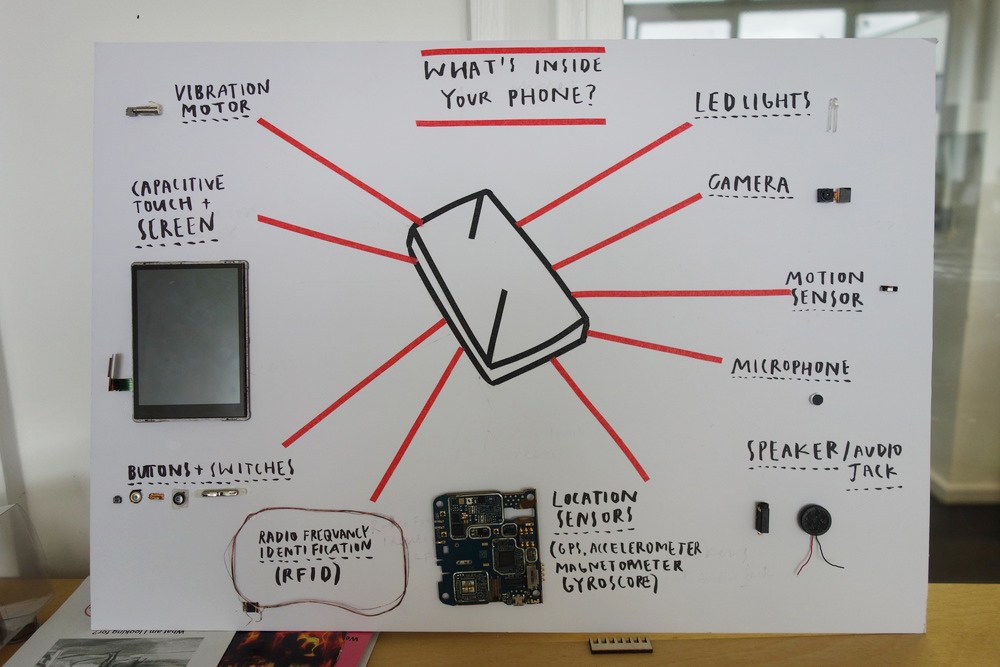 WHAT'S INSIDE
YOUR PHONE?
VIBRATION
MOTOR
CAPACITIVE
TOUCH +
SCREEN
BUTTONS + SWITCHES
RADIO FREQUANCY
IDENTIFICATION
(RFID)
LOCATION
SENSORS
(GPS, ACCELEROMETER
MAGNETOMETER
GYROSCORE)
LED LIGHTS
CAMERA
MOTION
SENSOR
MICROPHONE
SPEAKER/AUDIO
JACK
What am I looking for?